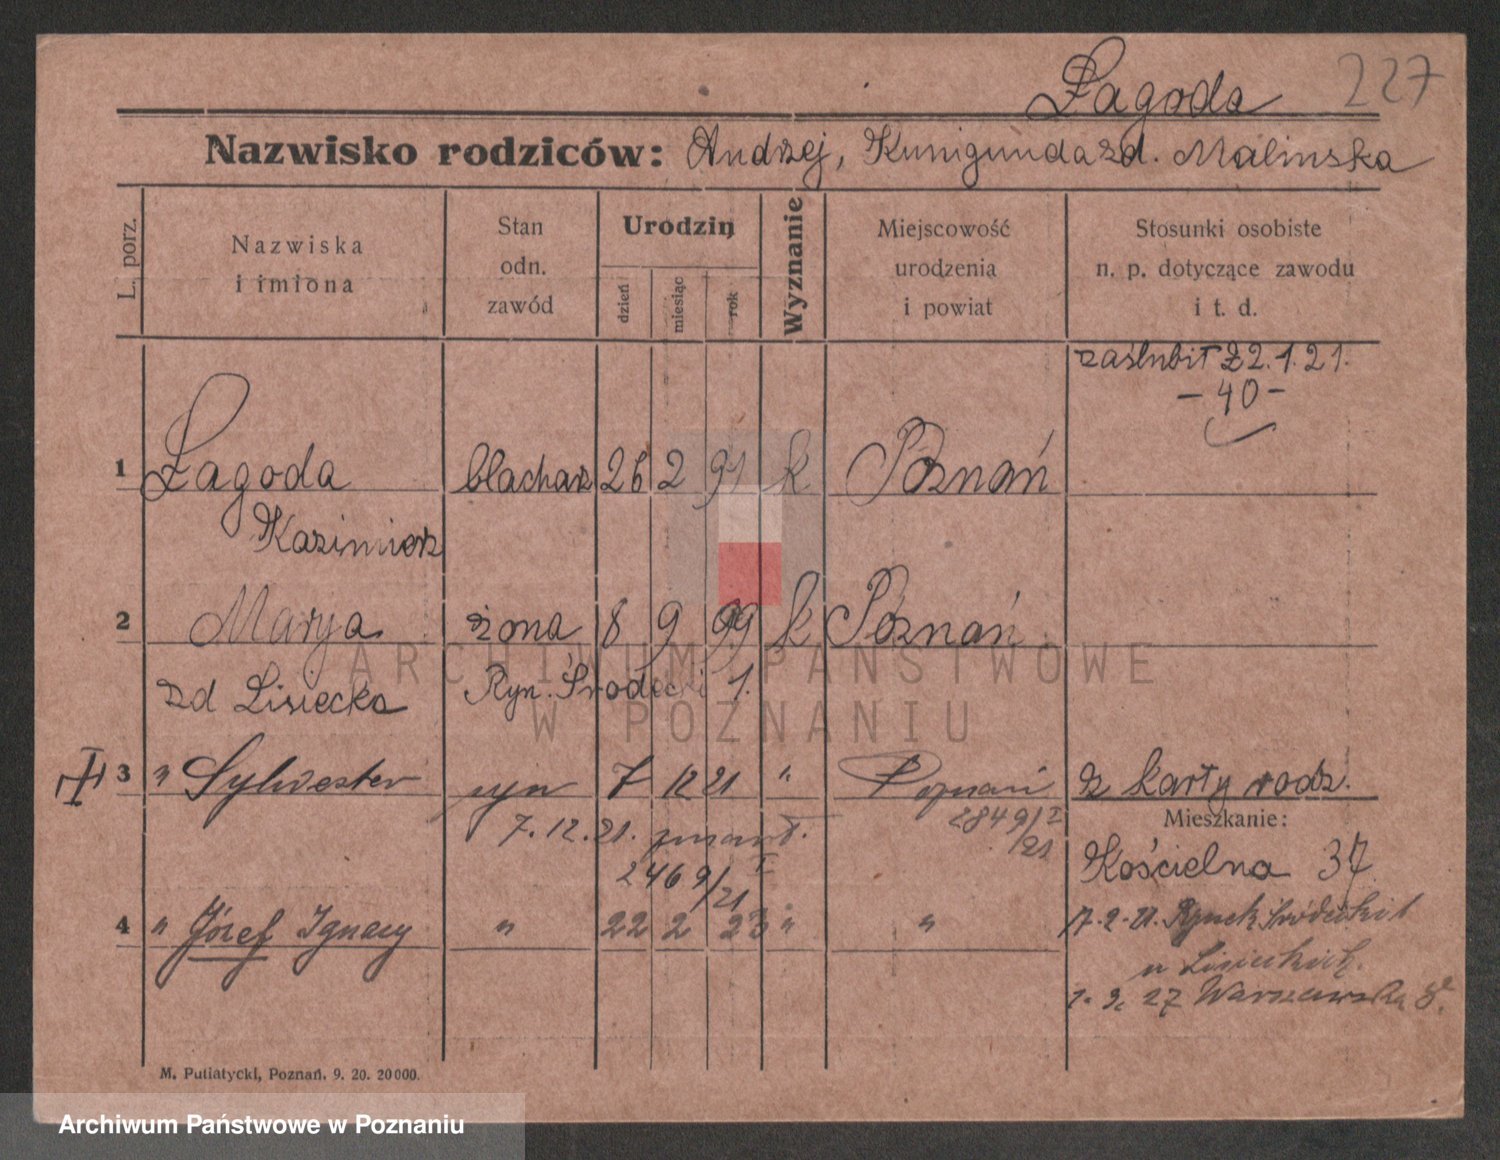 Łagoda 227
Nazwisko rodziców: Andrzej, Kunigunda zd. Malinska
L. porz.
Nazwiska
i imiona
Stan
odn.
zawód
Urodzin
dzień
miesiąc
rok
Wyznanie
Miejscowość
urodzenia
i powiat
Stosunki osobiste
n. p. dotyczące zawodu
i t. d.
zaślubił 22.1.21.
- 40 -
1 Łagoda blacharz 26 2 91 k Poznań
Kazimierz
2 Marja żona 8 9 99 k Poznań
zd Lisiecka Ryn. Środecki 1.
3 " Sylwester syn 7 12 21 " Poznań z karty rodz.
7.12.21. zmarł. 2849/I
/21
2469/I
/21
Mieszkanie:
Kościelna 37
4 " Józef Ignacy " 22 2 23 " "
17.2.21. Rynek Śródecki 1
u Lisieckich.
1.9.27 Warszawska
M. Putiatycki, Poznań. 9. 20. 20000.
ARCHIWUM PAŃSTWOWE
W POZNANIU
Archiwum Państwowe w Poznaniu